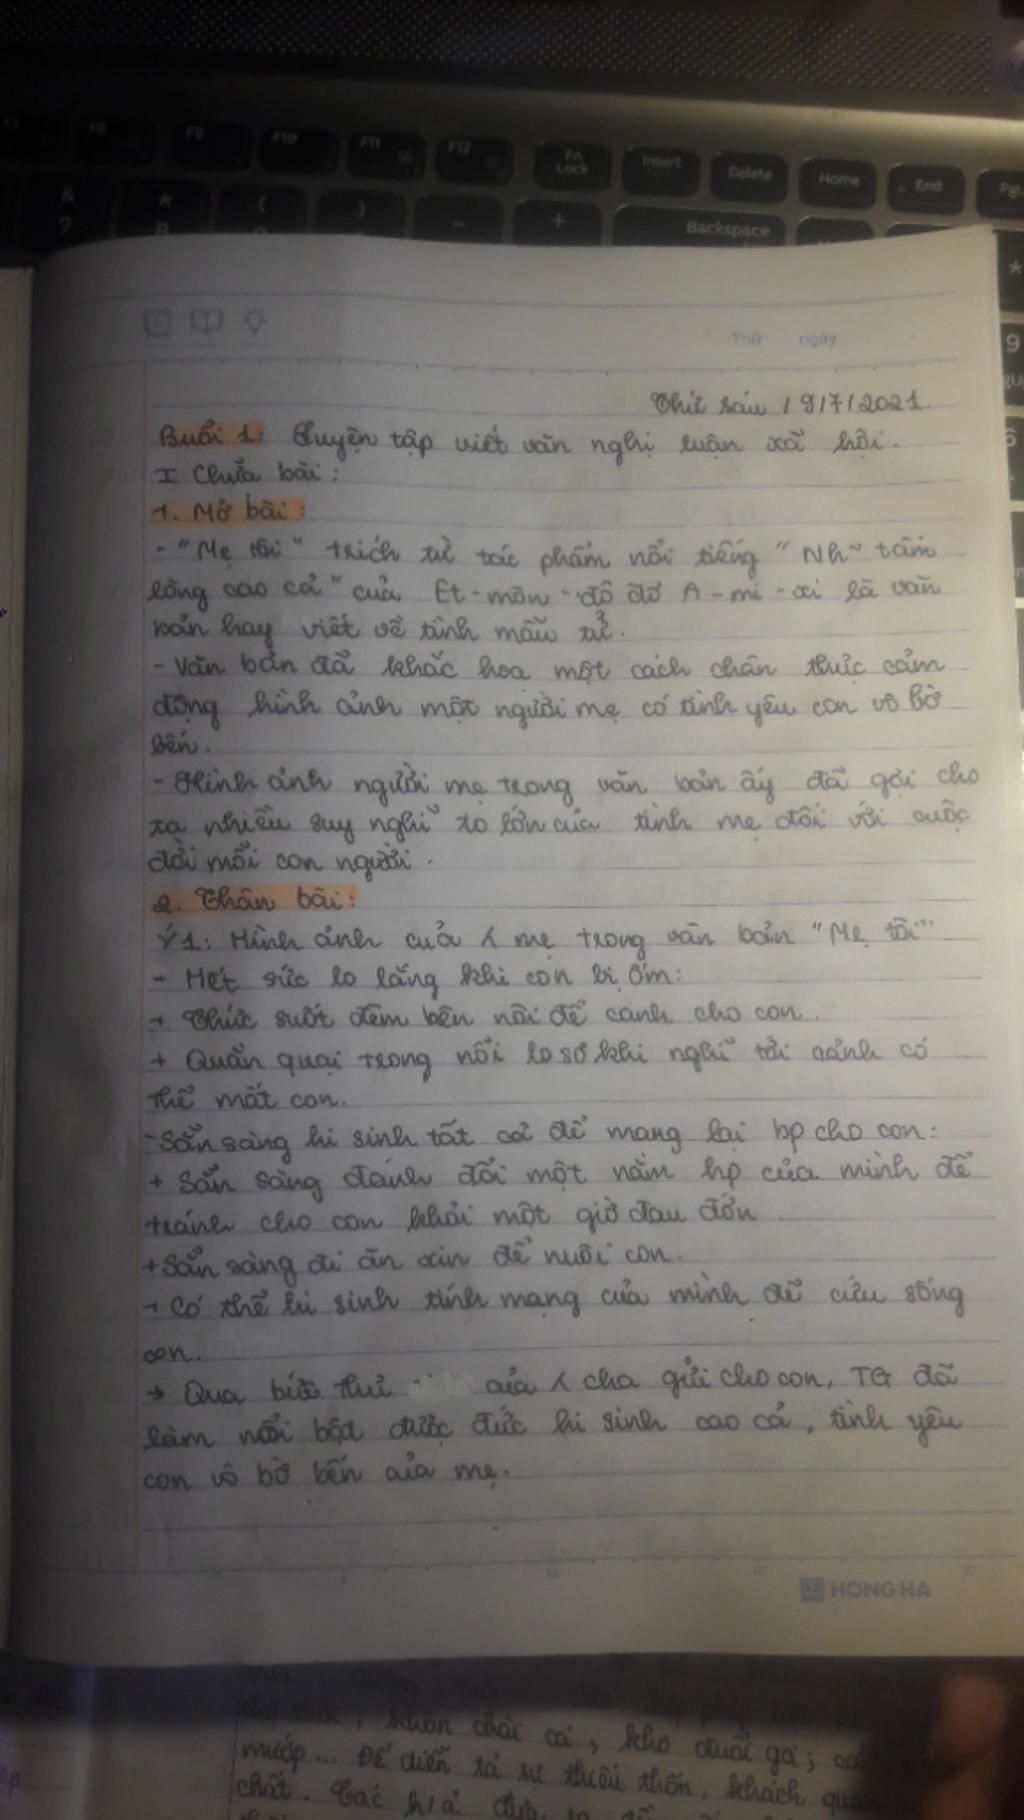 F8
F9
F10
F11
F12
Fn
Lock
Insert
Delete
Home
End
&
7
*
8
(
)
-
+
Backspace
*
9
6
Thứ ngày
Thứ sáu / 9/7/2021
Buổi 1: Luyện tập viết văn nghị luận xã hội.
I Chữa bài:
1. Mở bài:
- "Mẹ tôi" trích từ tác phẩm nổi tiếng "Nh~ tấm
lòng cao cả" của Ét-môn-đô đơ A-mi-xi là văn
bản hay viết về tình mẫu tử.
- Văn bản đã khắc họa một cách chân thực cảm
động hình ảnh một người mẹ có tình yêu con vô bờ
bến.
- Hình ảnh người mẹ trong văn bản ấy đã gợi cho
ta nhiều suy nghĩ to lớn của tình mẹ đối với cuộc
đời mỗi con người.
2. Thân bài:
Ý1: Hình ảnh của ʎ mẹ trong văn bản "Mẹ tôi"
- Hết sức lo lắng khi con bị ốm:
+ Thức suốt đêm bên nôi để canh cho con.
+ Quằn quại trong nỗi lo sợ khi nghĩ tới cảnh có
thể mất con.
- Sẵn sàng hi sinh tất cả để mang lại hp cho con:
+ Sẵn sàng đánh đổi một năm hp của mình để
tránh cho con khỏi một giờ đau đớn
+ Sẵn sàng đi ăn xin để nuôi con.
+ Có thể hi sinh tính mạng của mình để cứu sống
con.
→ Qua bức thư của ʎ cha gửi cho con, TG đã
làm nổi bật được đức hi sinh cao cả, tình yêu
con vô bờ bến của mẹ.
HONG HA
khôn chài cá, kho đuổi gà; cá
mướp... Để diễn tả sự thiếu thốn, khách
chất. Tác